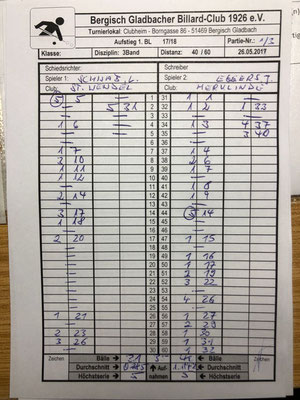 Bergisch Gladbacher Billard-Club 1926 e.V.
Turnierlokal: Clubheim - Borngasse 86 - 51469 Bergisch Gladbach
Aufstieg 1. BL 17/18 Partie-Nr.: 1/3
Klasse: Disziplin: 3Band Distanz: 40 / 60 26.05.2017
Schiedsrichter: Schreiber
Spieler 1: Spieler 2: EGBERS J.
Club: ST. WENDEL Club:
5 5 1 31 1 1
5 31 2 32 1 2 1 33
3 33
1 6 4 34 1 3 4 37
5 35 3 40
6 36
1 7 7 37 1 4
3 10 8 38 2 6
1 11 9 39 1 7
10 40
11 41 1 8
2 14 12 42 1 9
13 43
3 17 14 44 5 14
1 18 15 45
16 46
2 20 17 47 1 15
18 48
19 49 1 16
20 50 1 17
21 51 2 19
22 52 3 22
23 53
24 54 4 26
25 55
1 21 26 56 1 27
27 57 2 29
2 23 28 58 1 30
3 26 29 59 1 31
30 60 1 32
Zeichen Bälle Zeichen
Durchschnitt Auf- Durchschnitt
Höchstserie nahmen Höchstserie